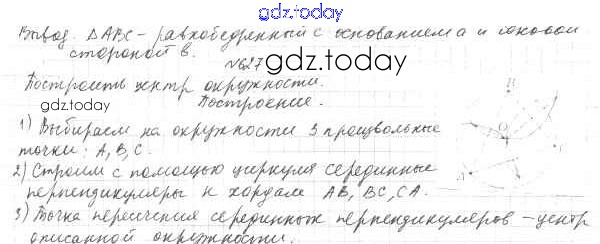 gdz.today
Вывод. ΔABC - равнобедренный с основанием a и боковой
стороной в.
N627
gdz.today
Построить центр окружности.
gdz.today
Построение.
1) Выбираем на окружности 3 произвольные
точки: A, B, C.
gdz.today
2) Строим с помощью циркуля серединные
перпендикуляры к хордам AB, BC, CA.
3) Точка пересечения серединных перпендикуляров - центр
описанной окружности.
gdz.today